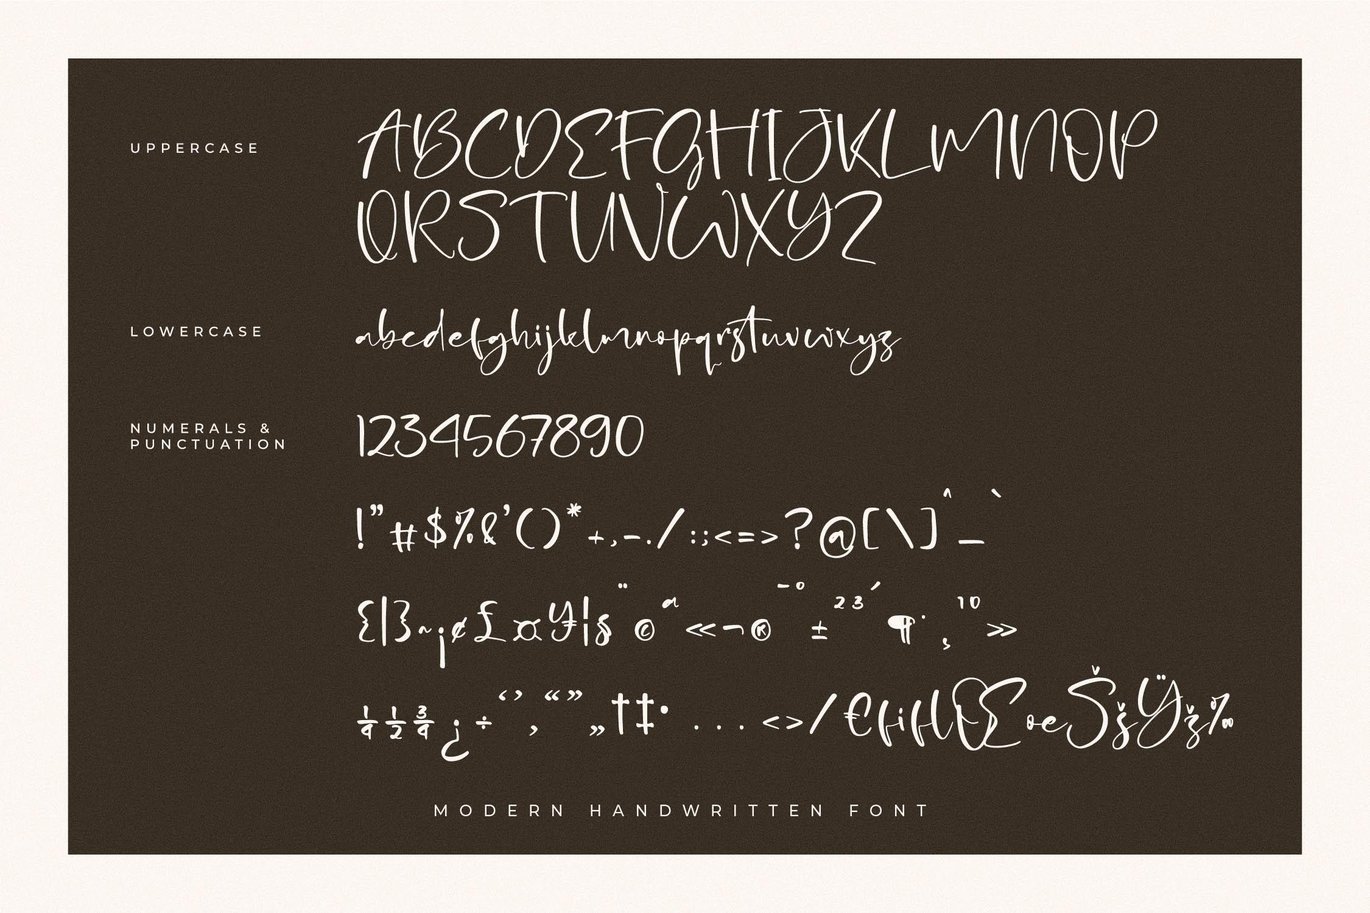 UPPERCASE
ABCDEFGHIJKLMNOP
QRSTUVWXYZ
LOWERCASE
abcdefghijklmnopqrstuvwxyz
NUMERALS &
PUNCTUATION
1234567890
!"#$%&'()*+,-./:;<=>?@[\]^_`
{|}~¡¢£¤¥¦§¨©ª«¬®¯°±²³´¶·¸¹º»
¼½¾¿÷‘’‚“”„†‡•...‹›⁄€fiflŒœŠšŸž‰
MODERN HANDWRITTEN FONT